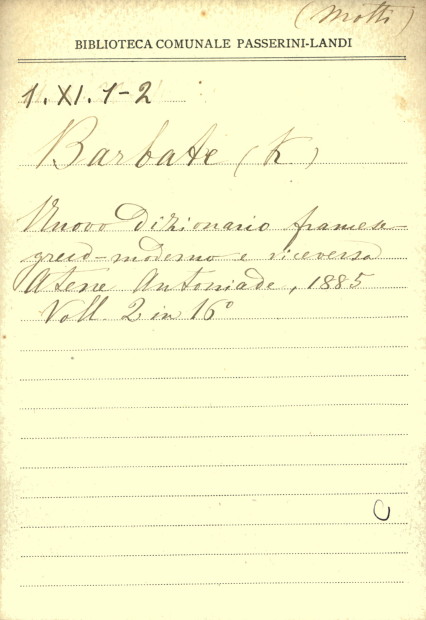 (Motti)
BIBLIOTECA COMUNALE PASSERINI-LANDI
1. XI. 1-2
Barbate (K)
Nuovo dizionario francese-
greco-moderno e viceversa
Atene Antoniade, 1885
Voll. 2 in 16°
C